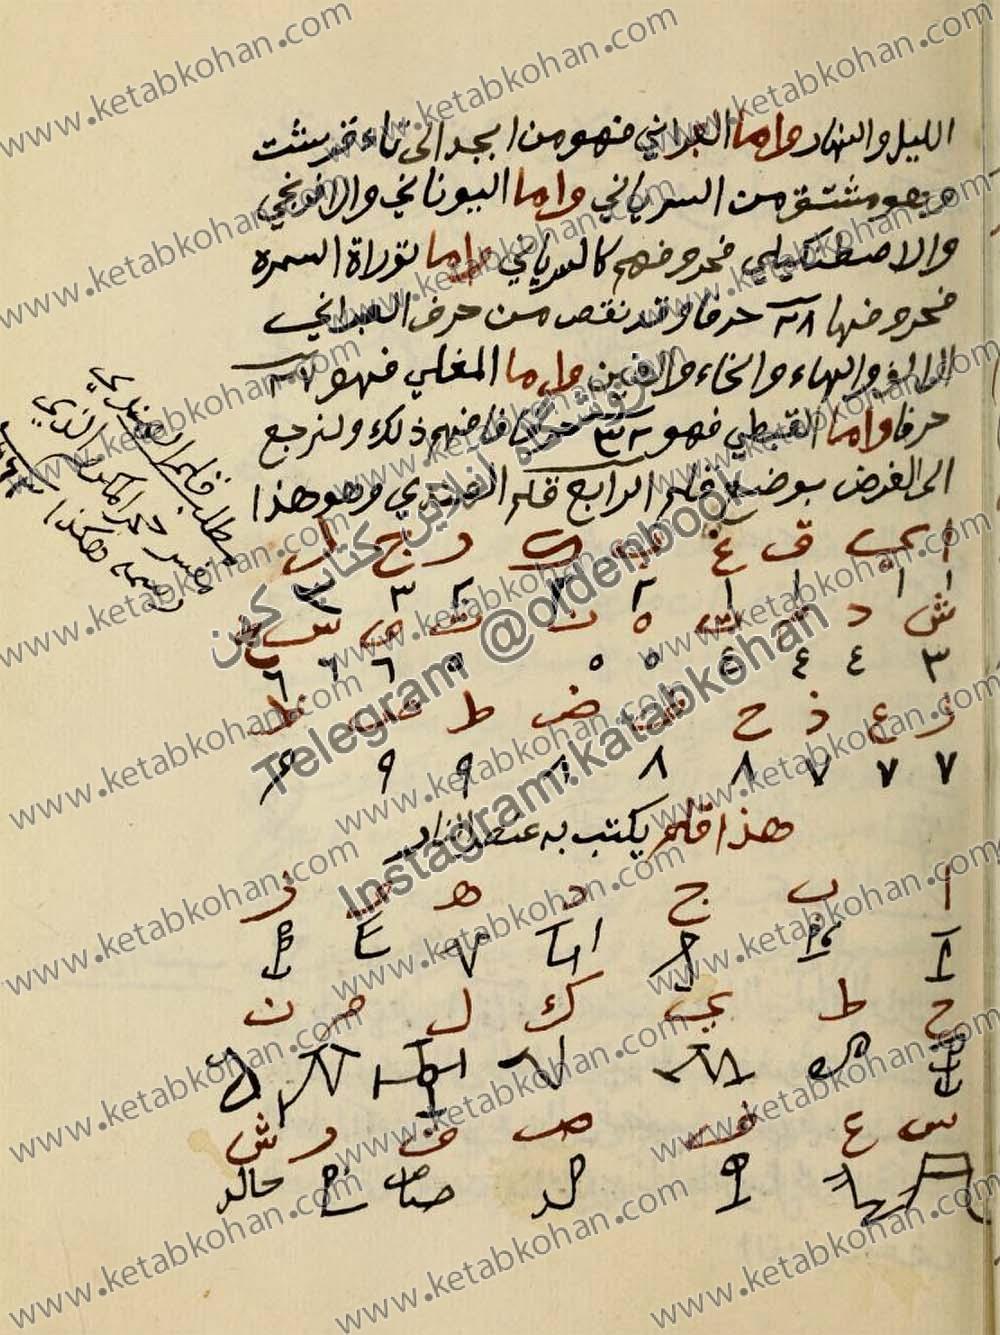 الليل والنهار واما العبراني فهو من ابجد الى تاء قرشت
وهو مشتق من السرياني واما اليوناني والافرنجي
والاصطنكيلي فحروفهم كالسرياني واما توراة السمرة
فحروفها حرفا وقد نقص من حرف العبراني
والهاء والخاء والغين واما المغلي فهو
حرفا واما القبطي فهو ٣٢ حرفا فافهم ذلك ولنرجع
الى الغرض بوضع قلم الرابع قلم الهندي وهو هذا
ا ي ق غ ب ك ر ج ل
١ ١ ١ ١ ٢ ٢ ٢ ٣ ٣
ش د م ت ه ن ث و س خ
٣ ٤ ٤ ٤ ٥ ٥ ٥ ٦ ٦ ٦
ز ع ذ ح ف ض ط ص ظ
٧ ٧ ٧ ٨ ٨ ٨ ٩ ٩ ٩
هذا قلم يكتب به
ا ب ج د ه و ز
ح ط ي ك ل م ن
س ع ف ص ق ر ش
مطلب قلم الهندي
حجر المكرم الذي
هكذا
www.ketabkohan.com
فروشگاه آنلاین کتاب کهن
Telegram @ordembook
Instagram:katabkohan